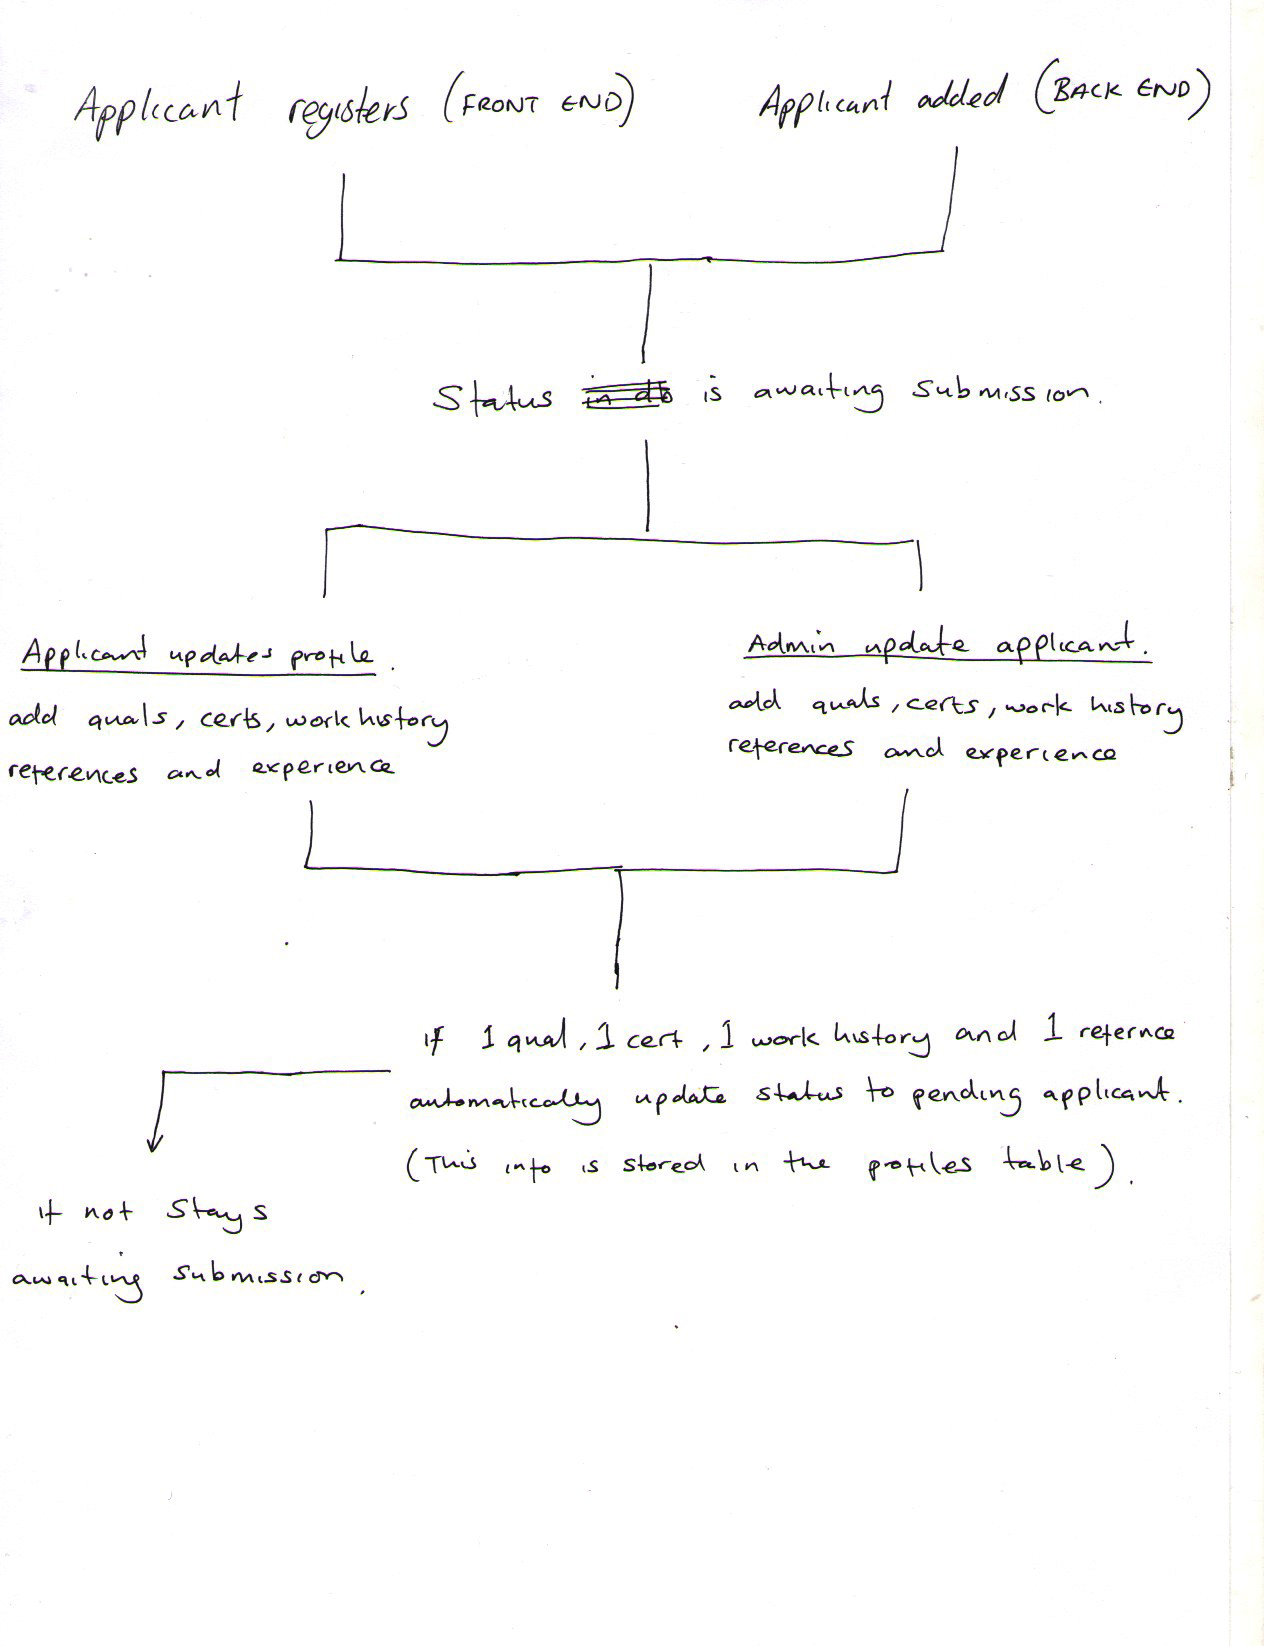 Applicant registers (FRONT END)
Applicant added (BACK END)
Status in db is awaiting submission.
Applicant updates profile.
add quals, certs, work history
references and experience
Admin update applicant.
add quals, certs, work history
references and experience
if 1 qual, 1 cert, 1 work history and 1 refernce
automatically update status to pending applicant.
(This info is stored in the profiles table).
if not stays
awaiting submission.